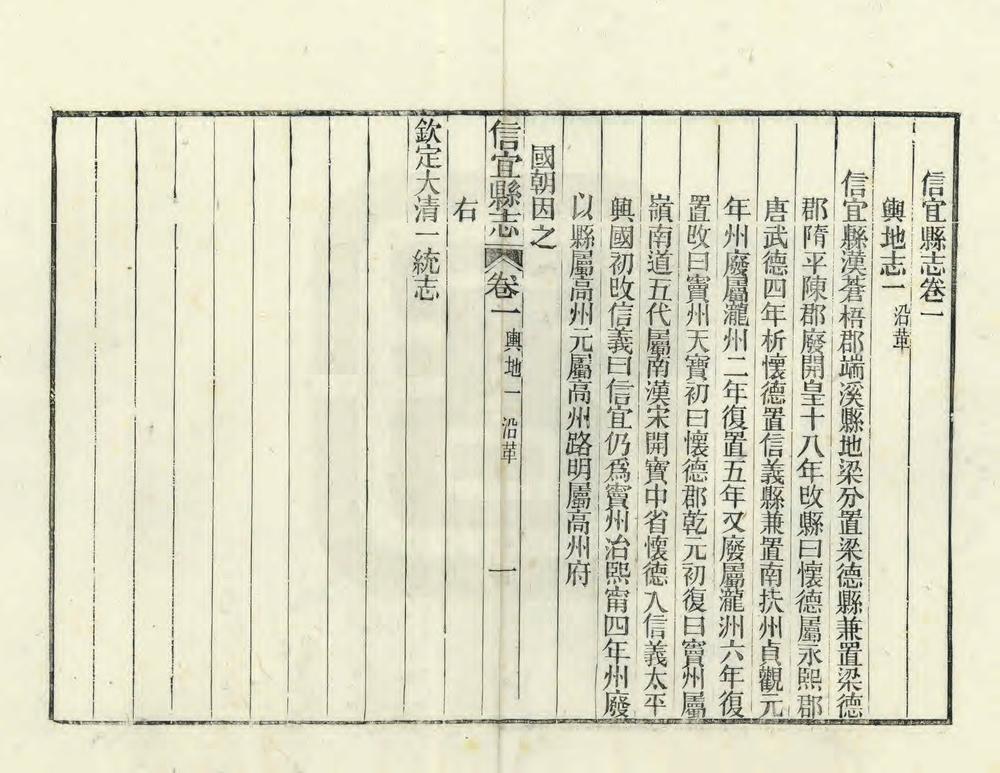 信宜縣志卷一
輿地志一 沿革
信宜縣漢蒼梧郡端溪縣地梁分置梁德縣兼置梁德
郡隋平陳郡廢開皇十八年改縣曰懷德屬永熙郡
唐武德四年析懷德置信義縣兼置南扶州貞觀元
年州廢屬瀧州二年復置五年又廢屬瀧洲六年復
置改曰竇州天寶初曰懷德郡乾元初復曰竇州屬
嶺南道五代屬南漢宋開寶中省懷德入信義太平
興國初改信義曰信宜仍爲竇州治熙甯四年州廢
以縣屬高州元屬高州路明屬高州府
國朝因之
信宜縣志 卷一 輿地一 沿革 一
右
欽定大清一統志